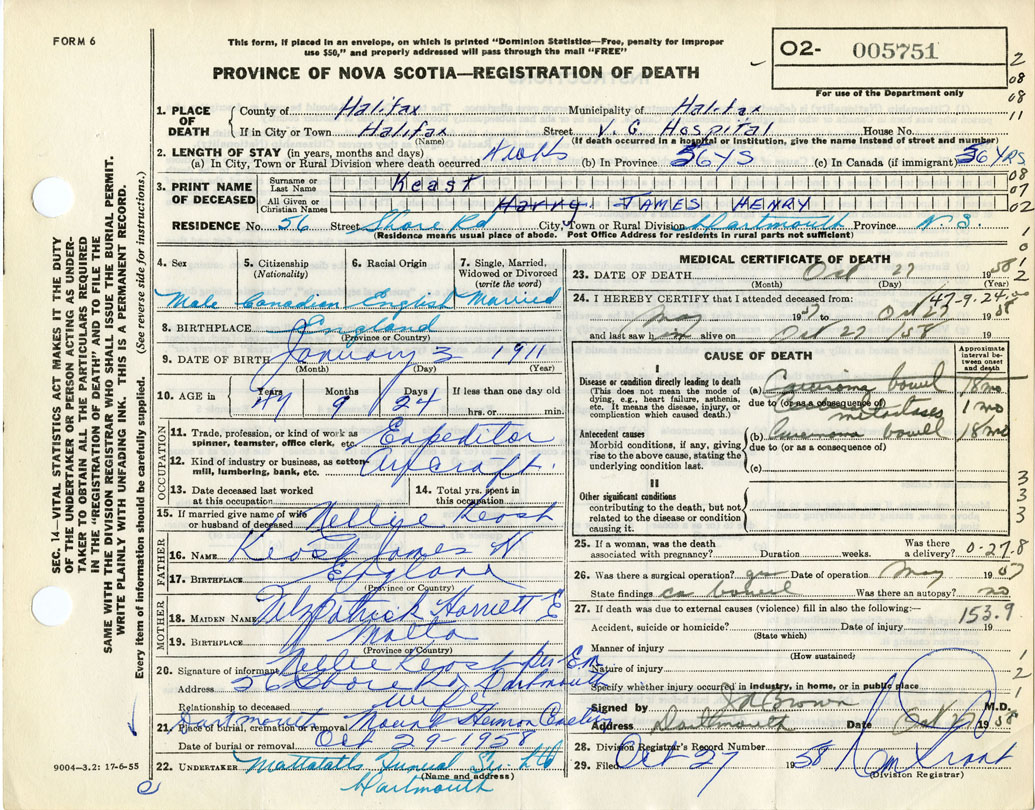 FORM 6
This form, if placed in an envelope, on which is printed "Dominion Statistics—Free, penalty for improper
use $50," and properly addressed will pass through the mail "FREE"
O2- 005751
PROVINCE OF NOVA SCOTIA—REGISTRATION OF DEATH
For use of the Department only
2
08
08
11
1. PLACE OF DEATH
County of Halifax Municipality of Halifax
If in City or Town Halifax Street V. G. Hospital House No.
(Name) (If death occurred in a hospital or institution, give the name instead of street and number)
2. LENGTH OF STAY (in years, months and days)
(a) In City, Town or Rural Division where death occurred (b) In Province 56 YS (c) In Canada (if immigrant) 56 YRS
3. PRINT NAME OF DECEASED
Surname or Last Name Keast
08
07
All Given or Christian Names Harry JAMES HENRY
02
RESIDENCE No. 56 Street Shore Rd City, Town or Rural Division Dartmouth Province N. S.
(Residence means usual place of abode. Post Office Address for residents in rural parts not sufficient)
SEC. 14—VITAL STATISTICS ACT MAKES IT THE DUTY
OF THE UNDERTAKER OR PERSON ACTING AS UNDER-
TAKER TO OBTAIN ALL THE PARTICULARS REQUIRED
IN THE "REGISTRATION OF DEATH" AND TO FILE THE
SAME WITH THE DIVISION REGISTRAR WHO SHALL ISSUE THE BURIAL PERMIT.
WRITE PLAINLY WITH UNFADING INK. THIS IS A PERMANENT RECORD.
Every item of information should be carefully supplied. (See reverse side for instructions.)
4. Sex 5. Citizenship (Nationality) 6. Racial Origin 7. Single, Married, Widowed or Divorced (write the word)
Male Canadian English Married
8. BIRTHPLACE England
(Province or Country)
9. DATE OF BIRTH January 3 1911
(Month) (Day) (Year)
10. AGE in Years Months Days If less than one day old
47 9 24 hrs. or min.
OCCUPATION
11. Trade, profession, or kind of work as
spinner, teamster, office clerk, etc. Expeditor
12. Kind of industry or business, as cotton
mill, lumbering, bank, etc. Aircraft.
13. Date deceased last worked
at this occupation
14. Total yrs. spent in
this occupation
15. If married give name of wife
or husband of deceased Nellie Keast
FATHER
16. NAME Keast James
17. BIRTHPLACE England
(Province or Country)
MOTHER
18. MAIDEN NAME Fitzpatrick Harriett E
19. BIRTHPLACE Malta
(Province or Country)
20. Signature of informant Nellie Keast Per
Address 56 Shore Rd Dartmouth
Relationship to deceased wife
21. Place of burial, cremation or removal Dartmouth Mount Hermon
Date of burial or removal Oct 29-1958
22. UNDERTAKER Mattatalls Funeral
(Name and address)
Dartmouth
9004—3.2: 17-6-55
MEDICAL CERTIFICATE OF DEATH
23. DATE OF DEATH Oct 27 1958
(Month) (Day) (Year)
47-9-24
24. I HEREBY CERTIFY that I attended deceased from:
May 19 to Oct 27 1958
and last saw him alive on Oct 27/58 19
CAUSE OF DEATH
Approximate interval between onset and death
I
Disease or condition directly leading to death
(This does not mean the mode of
dying, e.g., heart failure, asthenia,
etc. It means the disease, injury, or
complication which caused death.)
(a) Carcinoma bowel 18 mo
due to (or as a consequence of)
metastases 1 mo
Antecedent causes
Morbid conditions, if any, giving
rise to the above cause, stating the
underlying condition last.
(b) Carcinoma bowel 18 mo
due to (or as a consequence of)
(c)
II
Other significant conditions
contributing to the death, but not
related to the disease or condition
causing it.
3
3
3
25. If a woman, was the death
associated with pregnancy? Duration weeks. Was there a delivery?
0-27.8
26. Was there a surgical operation? yes Date of operation May 1957
State findings ca bowel Was there an autopsy? no
27. If death was due to external causes (violence) fill in also the following:—
153.9
Accident, suicide or homicide? Date of injury 19
(State which)
Manner of injury
(How sustained)
Nature of injury
Specify whether injury occurred in industry, in home, or in public place
Signed by Brown M.D.
Address Dartmouth Date Oct 27 1958
28. Division Registrar's Record Number
29. Filed Oct 27 1958
(Division Registrar)